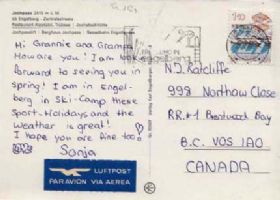 Jochpass
Engelberg - Zentralschweiz
Restaurant
Jochpasshütte
Jochpasslift - Berghaus Jochpass
Hi Grannie and Grampa
How are you! I am look
forward to seeing you in
spring! I am in Engel-
berg in Ski-Camp these
Sport-Holidays and the
weather is great!
I hope you are fine too
Sonja
LUFTPOST
PAR AVION VIA AEREA
N.J. Ratcliffe
998 Northaw Close
RR.#1 Brentwood Bay
B.C. VOS 1AO
CANADA